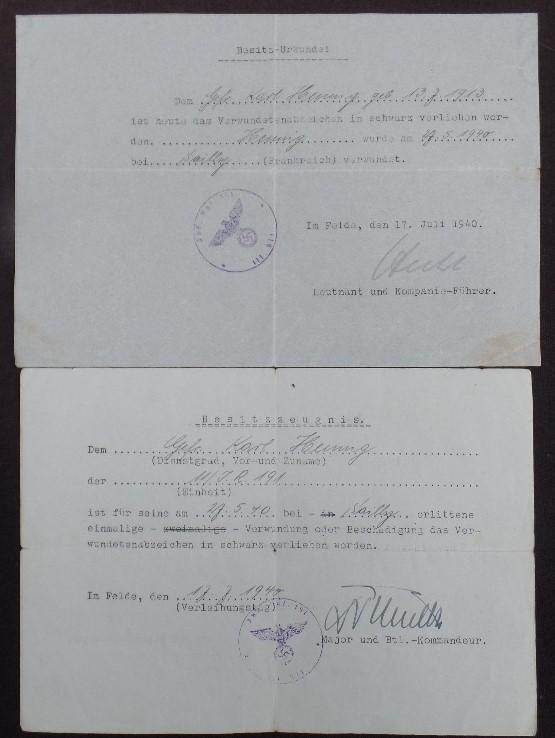 Besitz-Urkunde!
Dem Gefr. Karl Hennig geb. 13.7.1913
ist heute das Verwundetenabzeichen in schwarz verliehen wor-
den. Hennig wurde am 27.5.1940
bei Sailly (Frankreich) verwundet.
Im Felde, den 17. Juli 1940.
Leutnant und Kompanie-Führer.
Besitzzeugnis.
Dem Gefr. Karl Hennig
(Dienstgrad, Vor-und Zuname)
der III/I.R. 191
(Einheit)
ist für seine am 27.5.40. bei - in Sailly erlittene
einmalige - zweimalige - Verwundung oder Beschädigung das Ver-
wundetenabzeichen in schwarz verliehen worden.
Im Felde, den 17.7.1940
(Verleihungstag)
Major und Btl.-Kommandeur.